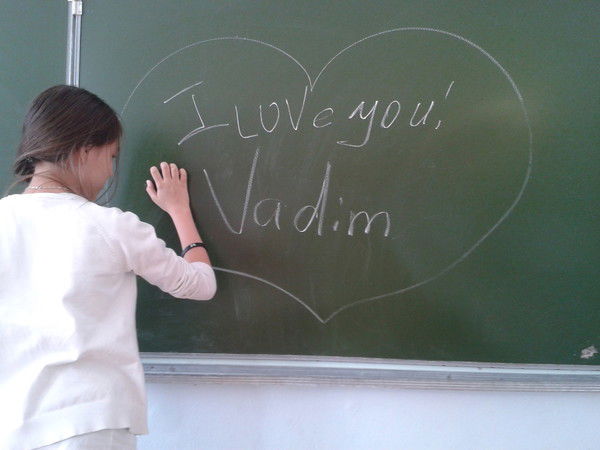 I LOVe you!
Vadim